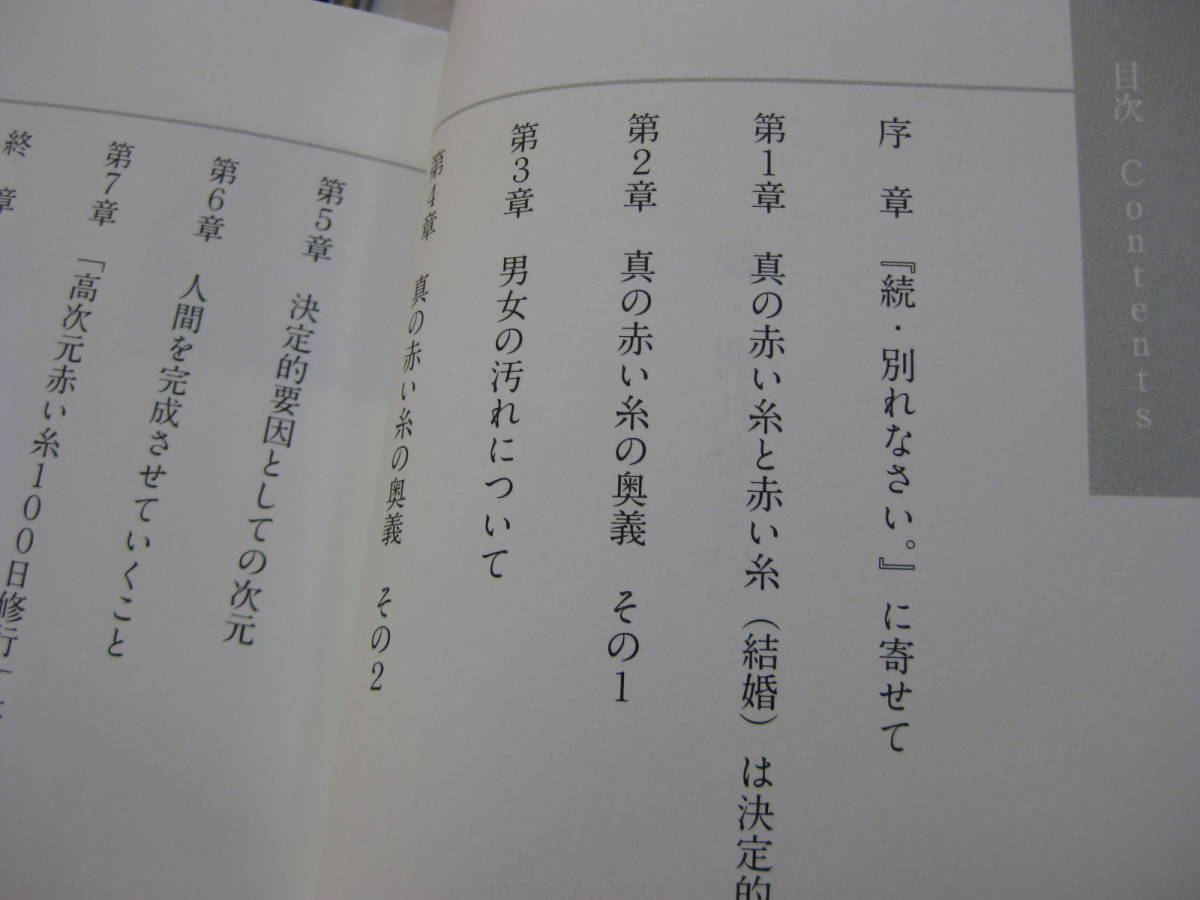 目次 Contents
序 章 『続・別れなさい。』に寄せて
第1章 真の赤い糸と赤い糸(結婚)は決定的
第2章 真の赤い糸の奥義 その1
第3章 男女の汚れについて
第4章 真の赤い糸の奥義 その2
第5章 決定的要因としての次元
第6章 人間を完成させていくこと
第7章 「高次元赤い糸100日修行」
終 章